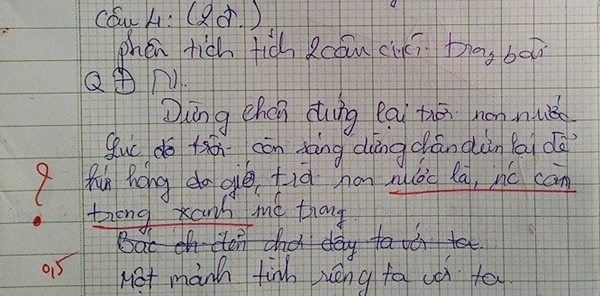 Câu 4: (2 đ.)
phân tích tích 2 câu cuối trong bài
Q Đ N.
Dừng chân đứng lại trời non nước
Lúc đó trời còn sáng dừng chân đứn lại để
hú hóng do gió, trà non nước là, nc còn
?
trong xanh mề trong.
Bác đến chơi đây ta với ta.
0,5
Một mảnh tình riêng ta với ta.